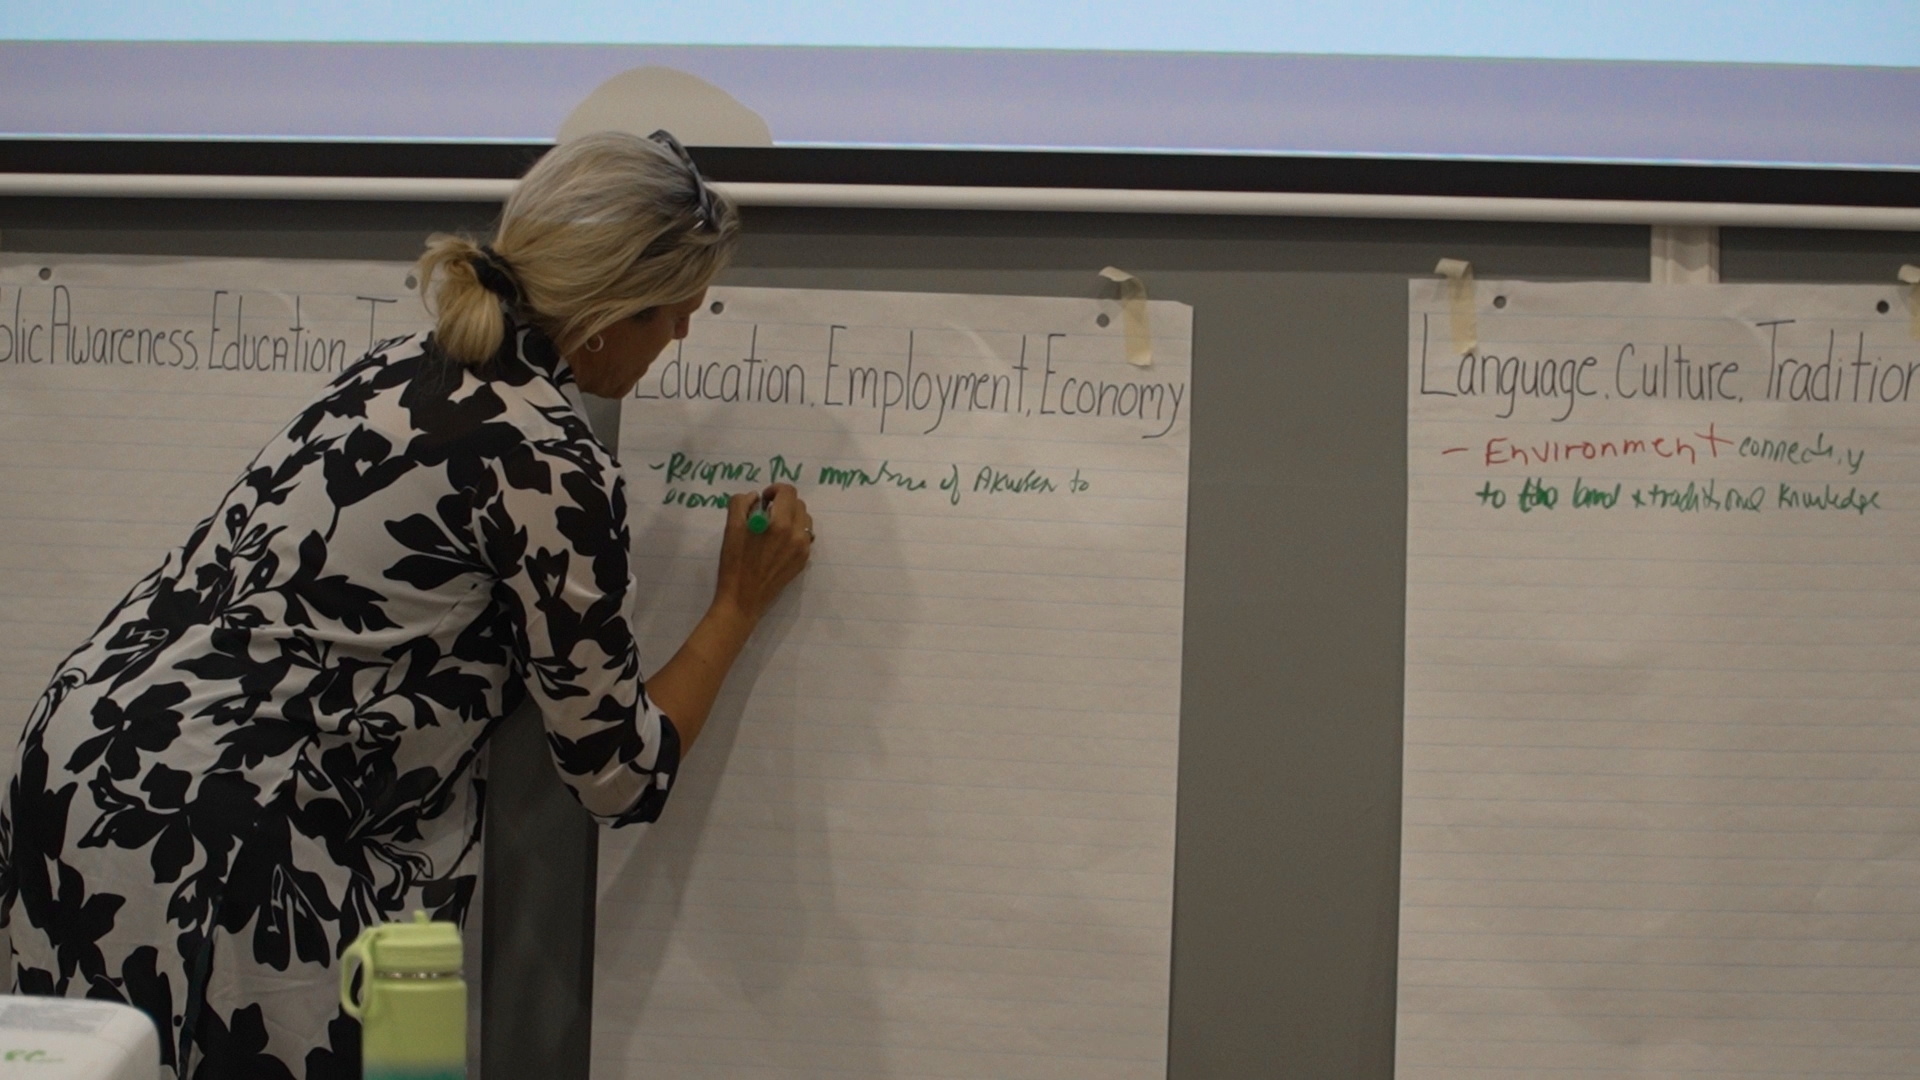 Awareness, Education, T
Education, Employment, Economy
- Recognize the importance of Akwesasne to
Language, Culture, Tradition
- Environment connectivity
to the land + traditional knowledge